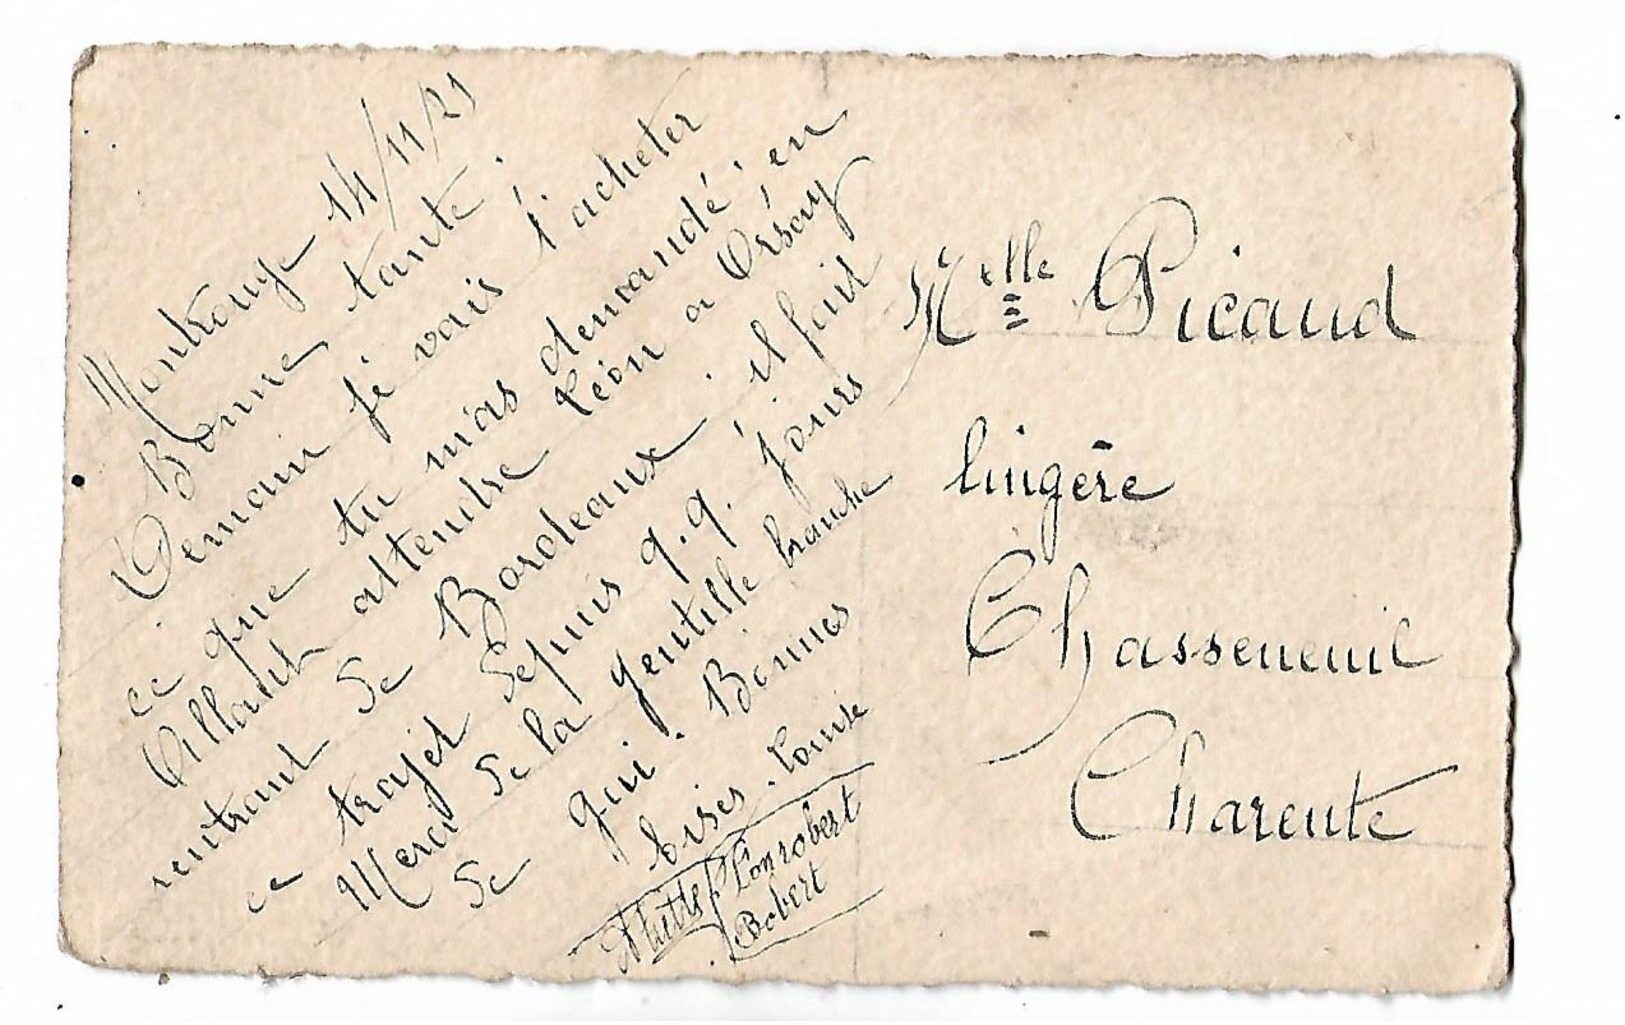 Montrouge 14/11/21
Bonne tante.
Demain je vais t'acheter
ce que tu m'as demandé, en
allant attendre Léon a Orsay
rentrant de Bordeaux. il fait
ce trajet depuis q.q. jours
Merci de la gentille branche
de gui. Bonnes
bises. Louise
Robert
Melle Picaud
lingère
Chasseneuil
Charente